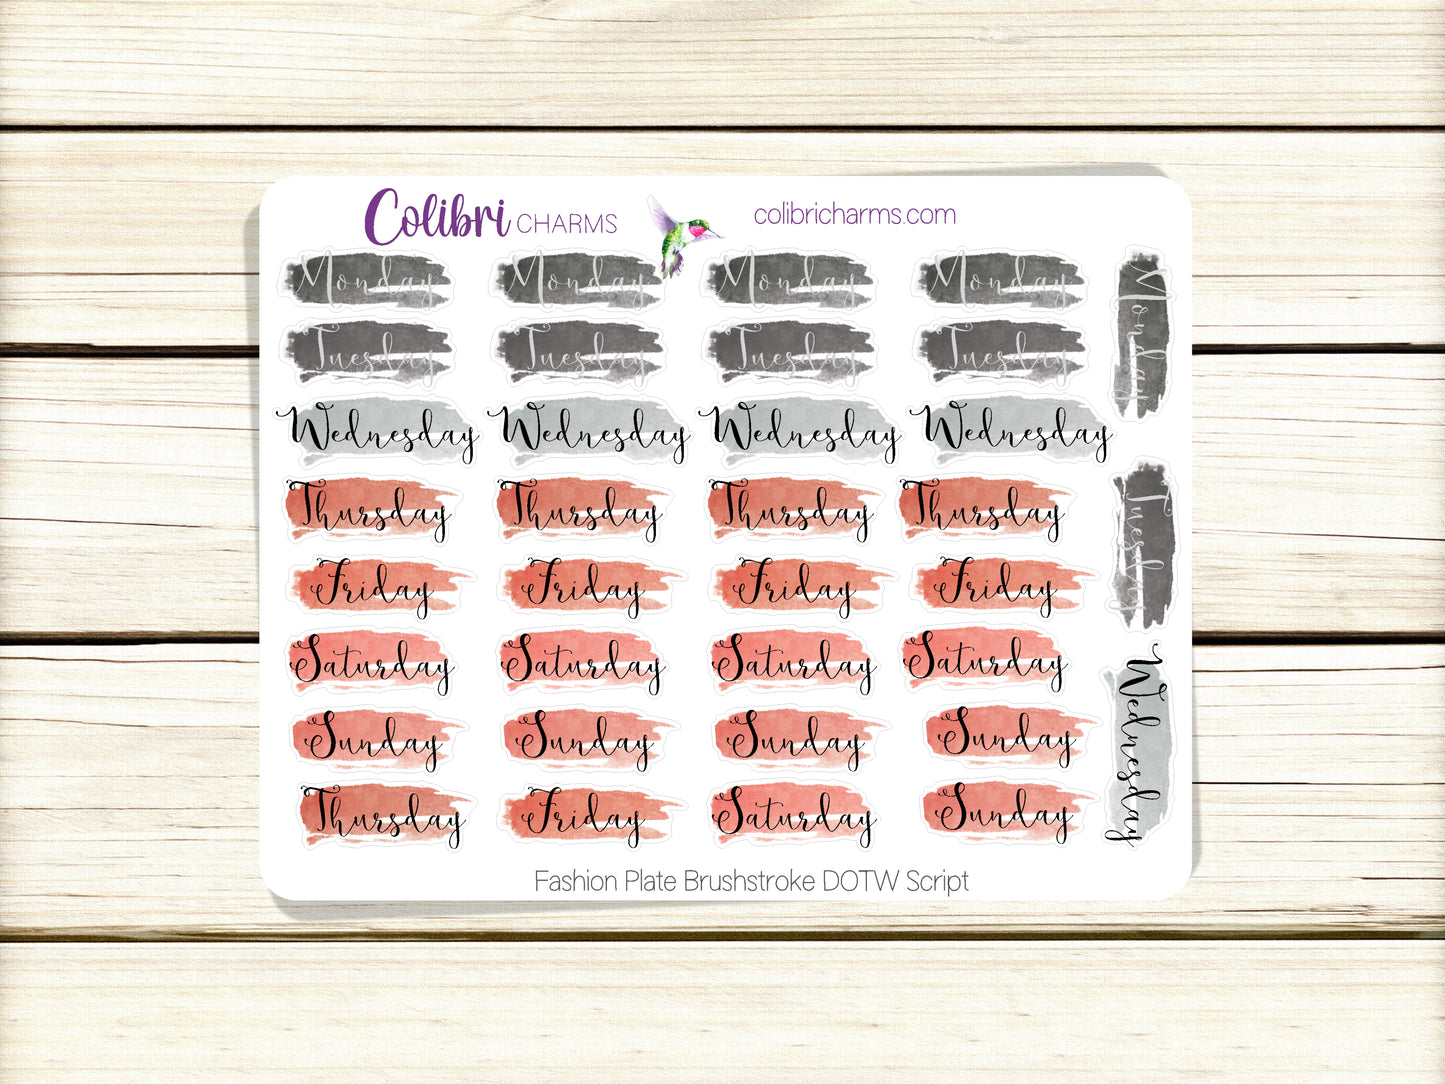 Colibri CHARMS
colibricharms.com
Monday Monday Monday Monday
Tuesday Tuesday Tuesday Tuesday
Wednesday Wednesday Wednesday Wednesday
Thursday Thursday Thursday Thursday
Friday Friday Friday Friday
Saturday Saturday Saturday Saturday
Sunday Sunday Sunday Sunday
Thursday Friday Saturday Sunday
Monday
Tuesday
Wednesday
Fashion Plate Brushstroke DOTW Script